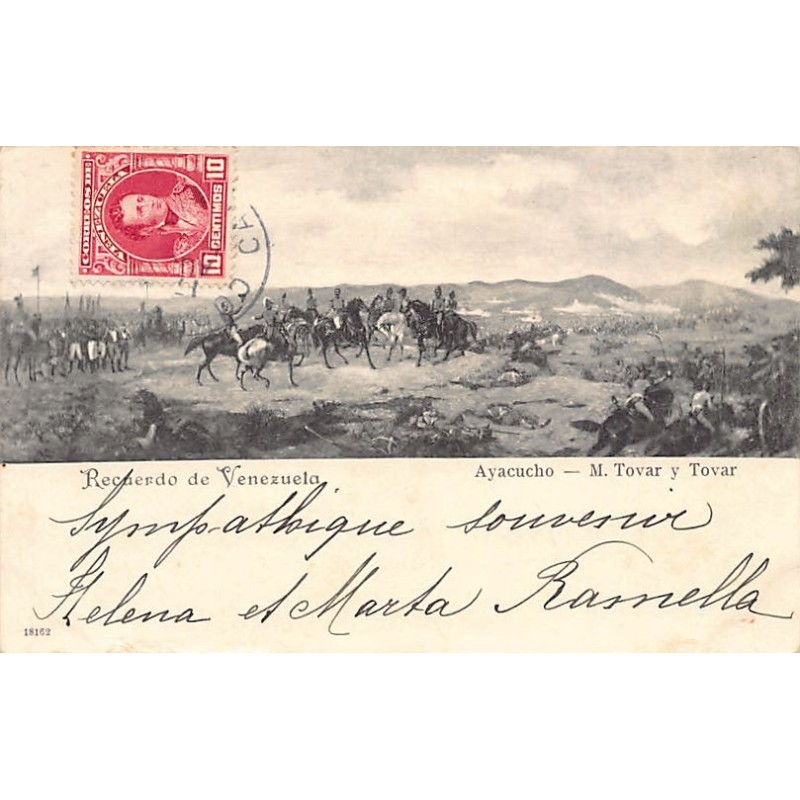 CORREOS DE
VENEZUELA
10
10
CENTIMOS
Recuerdo de Venezuela
Ayacucho — M. Tovar y Tovar
Sympathique souvenir
Helena et Marta Ramella
18162